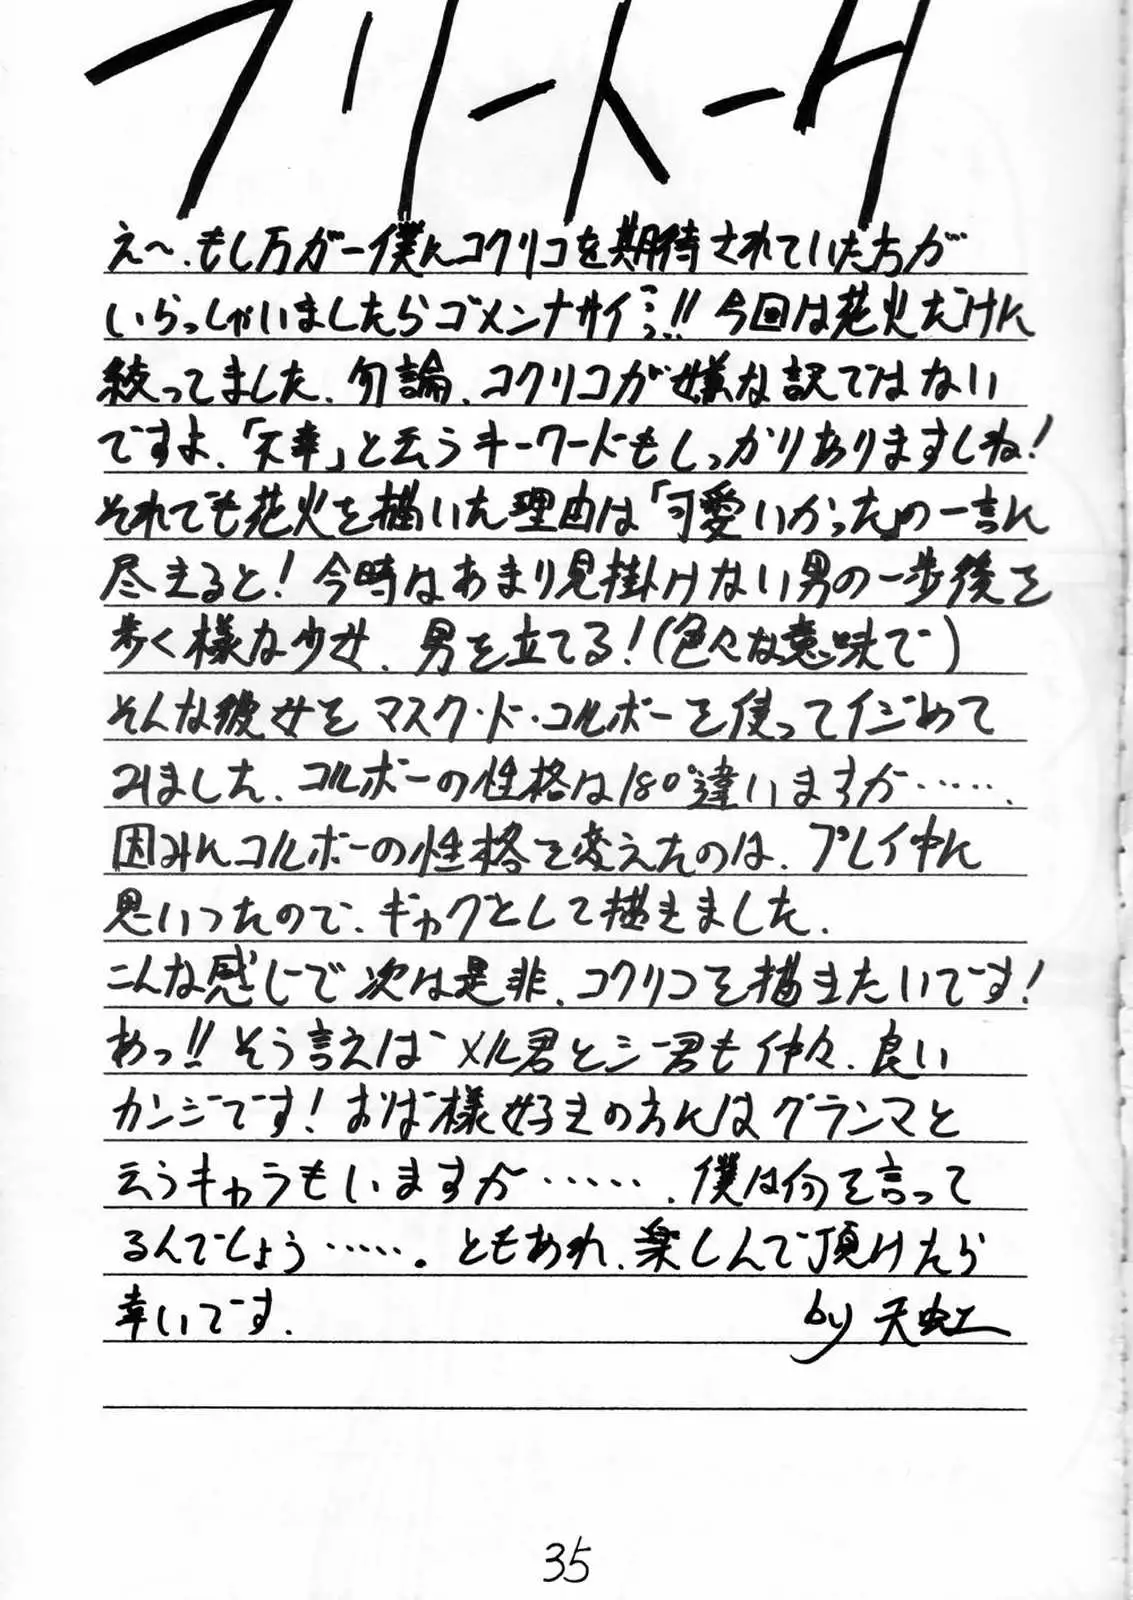 フリートーク
え〜、もし万が一僕にコクリコを期待されていた方が
いらっしゃいましたらゴメンナサイ…っ!!今回は花火だけに
絞ってました、勿論、コクリコが嫌な訳ではない
ですよ、「不幸」と云うキーワードもしっかりありますしね!
それでも花火を描いた理由は「可愛いかった」の一言に
尽えると!今時はあまり見掛けない男の一歩後を
歩く様な少女、男を立てる!(色々な意味で)
そんな彼女をマスク・ド・コルボーを使ってイジめて
みました、コルボーの性格は180°違いますが……、
因みにコルボーの性格を変えたのは、プレイ中に
思いつたので、ギャグとして描きました、
こんな感じで次は是非、コクリコを描きたいです!
あっ!!そう言えばメル君とシー君も仲々、良い
カンジです!おば様好きの方にはグランマと
云うキャラもいますが……、僕は何を言って
るんでしょう……。ともあれ、楽しんで頂けたら
幸いです、
by 天虹
35